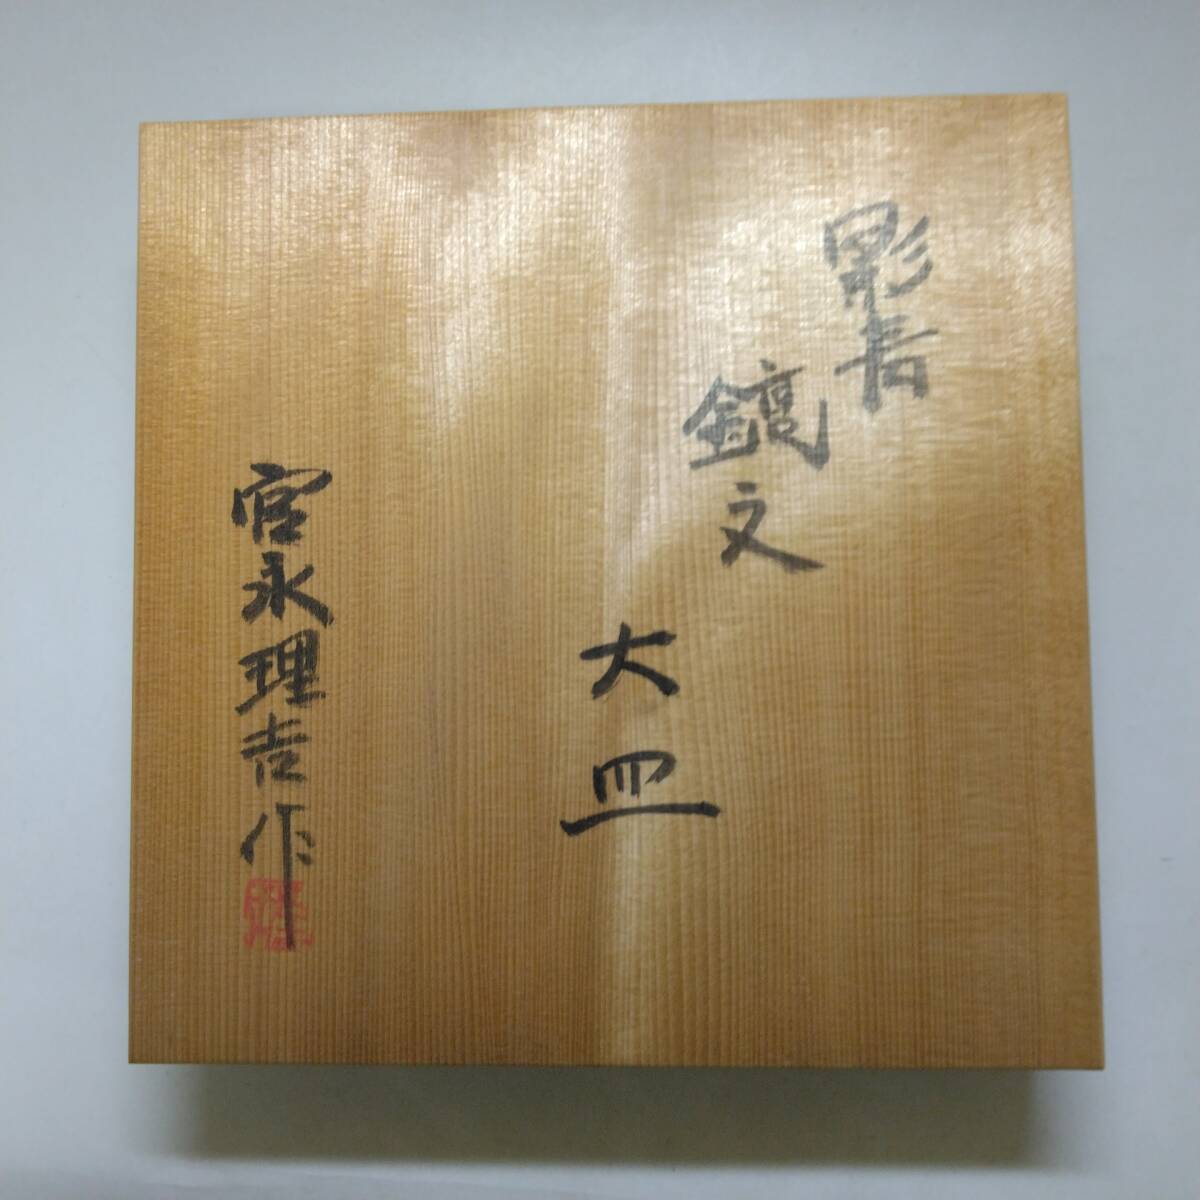 影青
鎬文
大皿
宮永理吉作